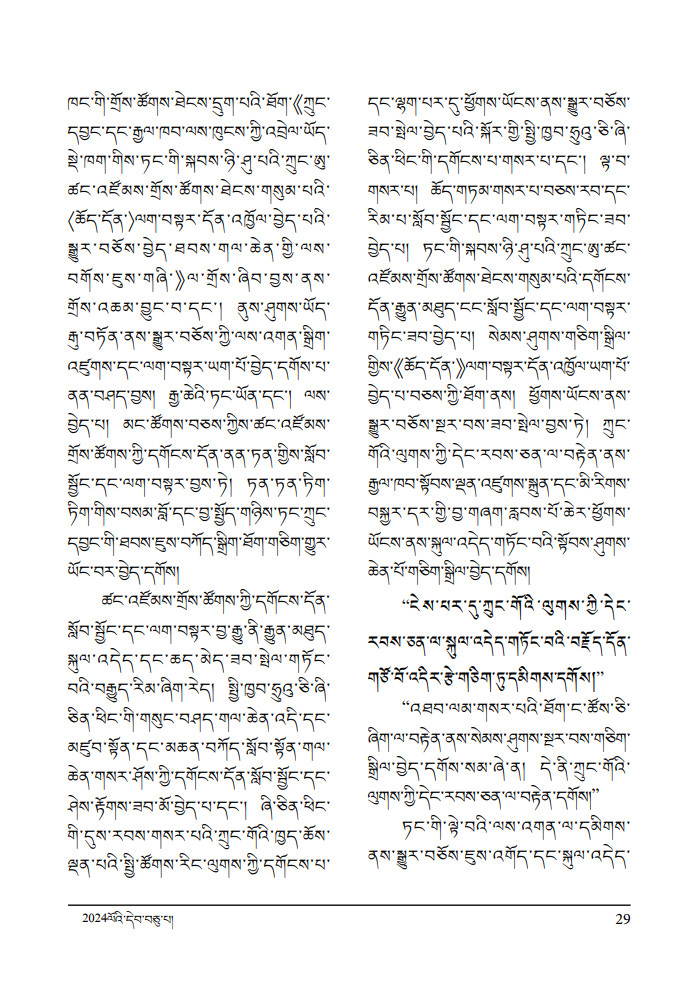 ཁང་གི་གྲོས་ཚོགས་ཐེངས་དྲུག་པའི་ཐོག་《ཀྲུང་
དབྱང་དང་རྒྱལ་ཁབ་ལས་ཁུངས་ཀྱི་འབྲེལ་ཡོད་
སྡེ་ཁག་གིས་ཏང་གི་སྐབས་ཉི་ཤུ་པའི་ཀྲུང་ཨུ་
ཚང་འཛོམས་གྲོས་ཚོགས་ཐེངས་གསུམ་པའི་
〈ཆོད་དོན་〉ལག་བསྟར་དོན་འཁྱོལ་བྱེད་པའི་
སྒྱུར་བཅོས་བྱེད་ཐབས་གལ་ཆེན་གྱི་ལས་
བགོས་ཇུས་གཞི་》ལ་གྲོས་ཞིབ་བྱས་ནས་
གྲོས་འཆམ་བྱུང་བ་དང་། ནུས་ཤུགས་ཡོད་
རྒུ་བཏོན་ནས་སྒྱུར་བཅོས་ཀྱི་ལས་འགན་སྒྲིག་
འཛུགས་དང་ལག་བསྟར་ཡག་པོ་བྱེད་དགོས་པ་
ནན་བཤད་བྱས། རྒྱ་ཆེའི་ཏང་ཡོན་དང་། ལས་
བྱེད་པ། མང་ཚོགས་བཅས་ཀྱིས་ཚང་འཛོམས་
གྲོས་ཚོགས་ཀྱི་དགོངས་དོན་ནན་ཏན་གྱིས་སློབ་
སྦྱོང་དང་ལག་བསྟར་བྱས་ཏེ། ཏན་ཏན་ཏིག་
ཏིག་གིས་བསམ་བློ་དང་བྱ་སྤྱོད་གཉིས་ཏང་ཀྲུང་
དབྱང་གི་ཐབས་ཇུས་བཀོད་སྒྲིག་ཐོག་གཅིག་གྱུར་
ཡོང་བར་བྱེད་དགོས།
ཚང་འཛོམས་གྲོས་ཚོགས་ཀྱི་དགོངས་དོན་
སློབ་སྦྱོང་དང་ལག་བསྟར་བྱ་རྒྱུ་ནི་རྒྱུན་མཐུད་
སྐུལ་འདེད་དང་ཆད་མེད་ཟབ་སྤེལ་གཏོང་
བའི་བརྒྱུད་རིམ་ཞིག་རེད། སྤྱི་ཁྱབ་ཧྲུའུ་ཅི་ཞི་
ཅིན་ཕིང་གི་གསུང་བཤད་གལ་ཆེན་འདི་དང་
མཛུབ་སྟོན་དང་མཆན་བཀོད་སློབ་སྟོན་གལ་
ཆེན་གསར་ཤོས་ཀྱི་དགོངས་དོན་སློབ་སྦྱོང་དང་
ཤེས་རྟོགས་ཟབ་མོ་བྱེད་པ་དང་། ཞི་ཅིན་ཕིང་
གི་དུས་རབས་གསར་པའི་ཀྲུང་གོའི་ཁྱད་ཆོས་
ལྡན་པའི་སྤྱི་ཚོགས་རིང་ལུགས་ཀྱི་དགོངས་པ་
དང་ལྷག་པར་དུ་ཕྱོགས་ཡོངས་ནས་སྒྱུར་བཅོས་
ཟབ་སྤེལ་བྱེད་པའི་སྐོར་གྱི་སྤྱི་ཁྱབ་ཧྲུའུ་ཅི་ཞི་
ཅིན་ཕིང་གི་དགོངས་པ་གསར་པ་དང་། ལྟ་བ་
གསར་པ། ཆོད་གཏམ་གསར་པ་བཅས་རབ་དང་
རིམ་པ་སློབ་སྦྱོང་དང་ལག་བསྟར་གཏིང་ཟབ་
བྱེད་པ། ཏང་གི་སྐབས་ཉི་ཤུ་པའི་ཀྲུང་ཨུ་ཚང་
འཛོམས་གྲོས་ཚོགས་ཐེངས་གསུམ་པའི་དགོངས་
དོན་རྒྱུན་མཐུད་ངང་སློབ་སྦྱོང་དང་ལག་བསྟར་
གཏིང་ཟབ་བྱེད་པ། སེམས་ཤུགས་གཅིག་སྒྲིལ་
གྱིས་《ཆོད་དོན་》ལག་བསྟར་དོན་འཁྱོལ་ཡག་པོ་
བྱེད་པ་བཅས་ཀྱི་ཐོག་ནས། ཕྱོགས་ཡོངས་ནས་
སྒྱུར་བཅོས་སྔར་བས་ཟབ་སྤེལ་བྱས་ཏེ། ཀྲུང་
གོའི་ལུགས་ཀྱི་དེང་རབས་ཅན་ལ་བརྟེན་ནས་
རྒྱལ་ཁབ་སྟོབས་ལྡན་འཛུགས་སྐྲུན་དང་མི་རིགས་
བསྐྱར་དར་གྱི་བྱ་གཞག་རླབས་པོ་ཆེར་ཕྱོགས་
ཡོངས་ནས་སྐུལ་འདེད་གཏོང་བའི་སྟོབས་ཤུགས་
ཆེན་པོ་གཅིག་སྒྲིལ་བྱེད་དགོས།
“ངེས་པར་དུ་ཀྲུང་གོའི་ལུགས་ཀྱི་དེང་
རབས་ཅན་ལ་སྐུལ་འདེད་གཏོང་བའི་བརྗོད་དོན་
གཙོ་བོ་འདིར་རྩེ་གཅིག་ཏུ་དམིགས་དགོས།”
“འཐབ་ལམ་གསར་པའི་ཐོག་ང་ཚོས་ཅི་
ཞིག་ལ་བརྟེན་ནས་སེམས་ཤུགས་སྔར་བས་གཅིག་
སྒྲིལ་བྱེད་དགོས་སམ་ཞེ་ན། དེ་ནི་ཀྲུང་གོའི་
ལུགས་ཀྱི་དེང་རབས་ཅན་ལ་བརྟེན་དགོས།”
ཏང་གི་ལྟེ་བའི་ལས་འགན་ལ་དམིགས་
ནས་སྒྱུར་བཅོས་ཇུས་འགོད་དང་སྐུལ་འདེད་
2024ལོའི་དེབ་བཅུ་པ།
29